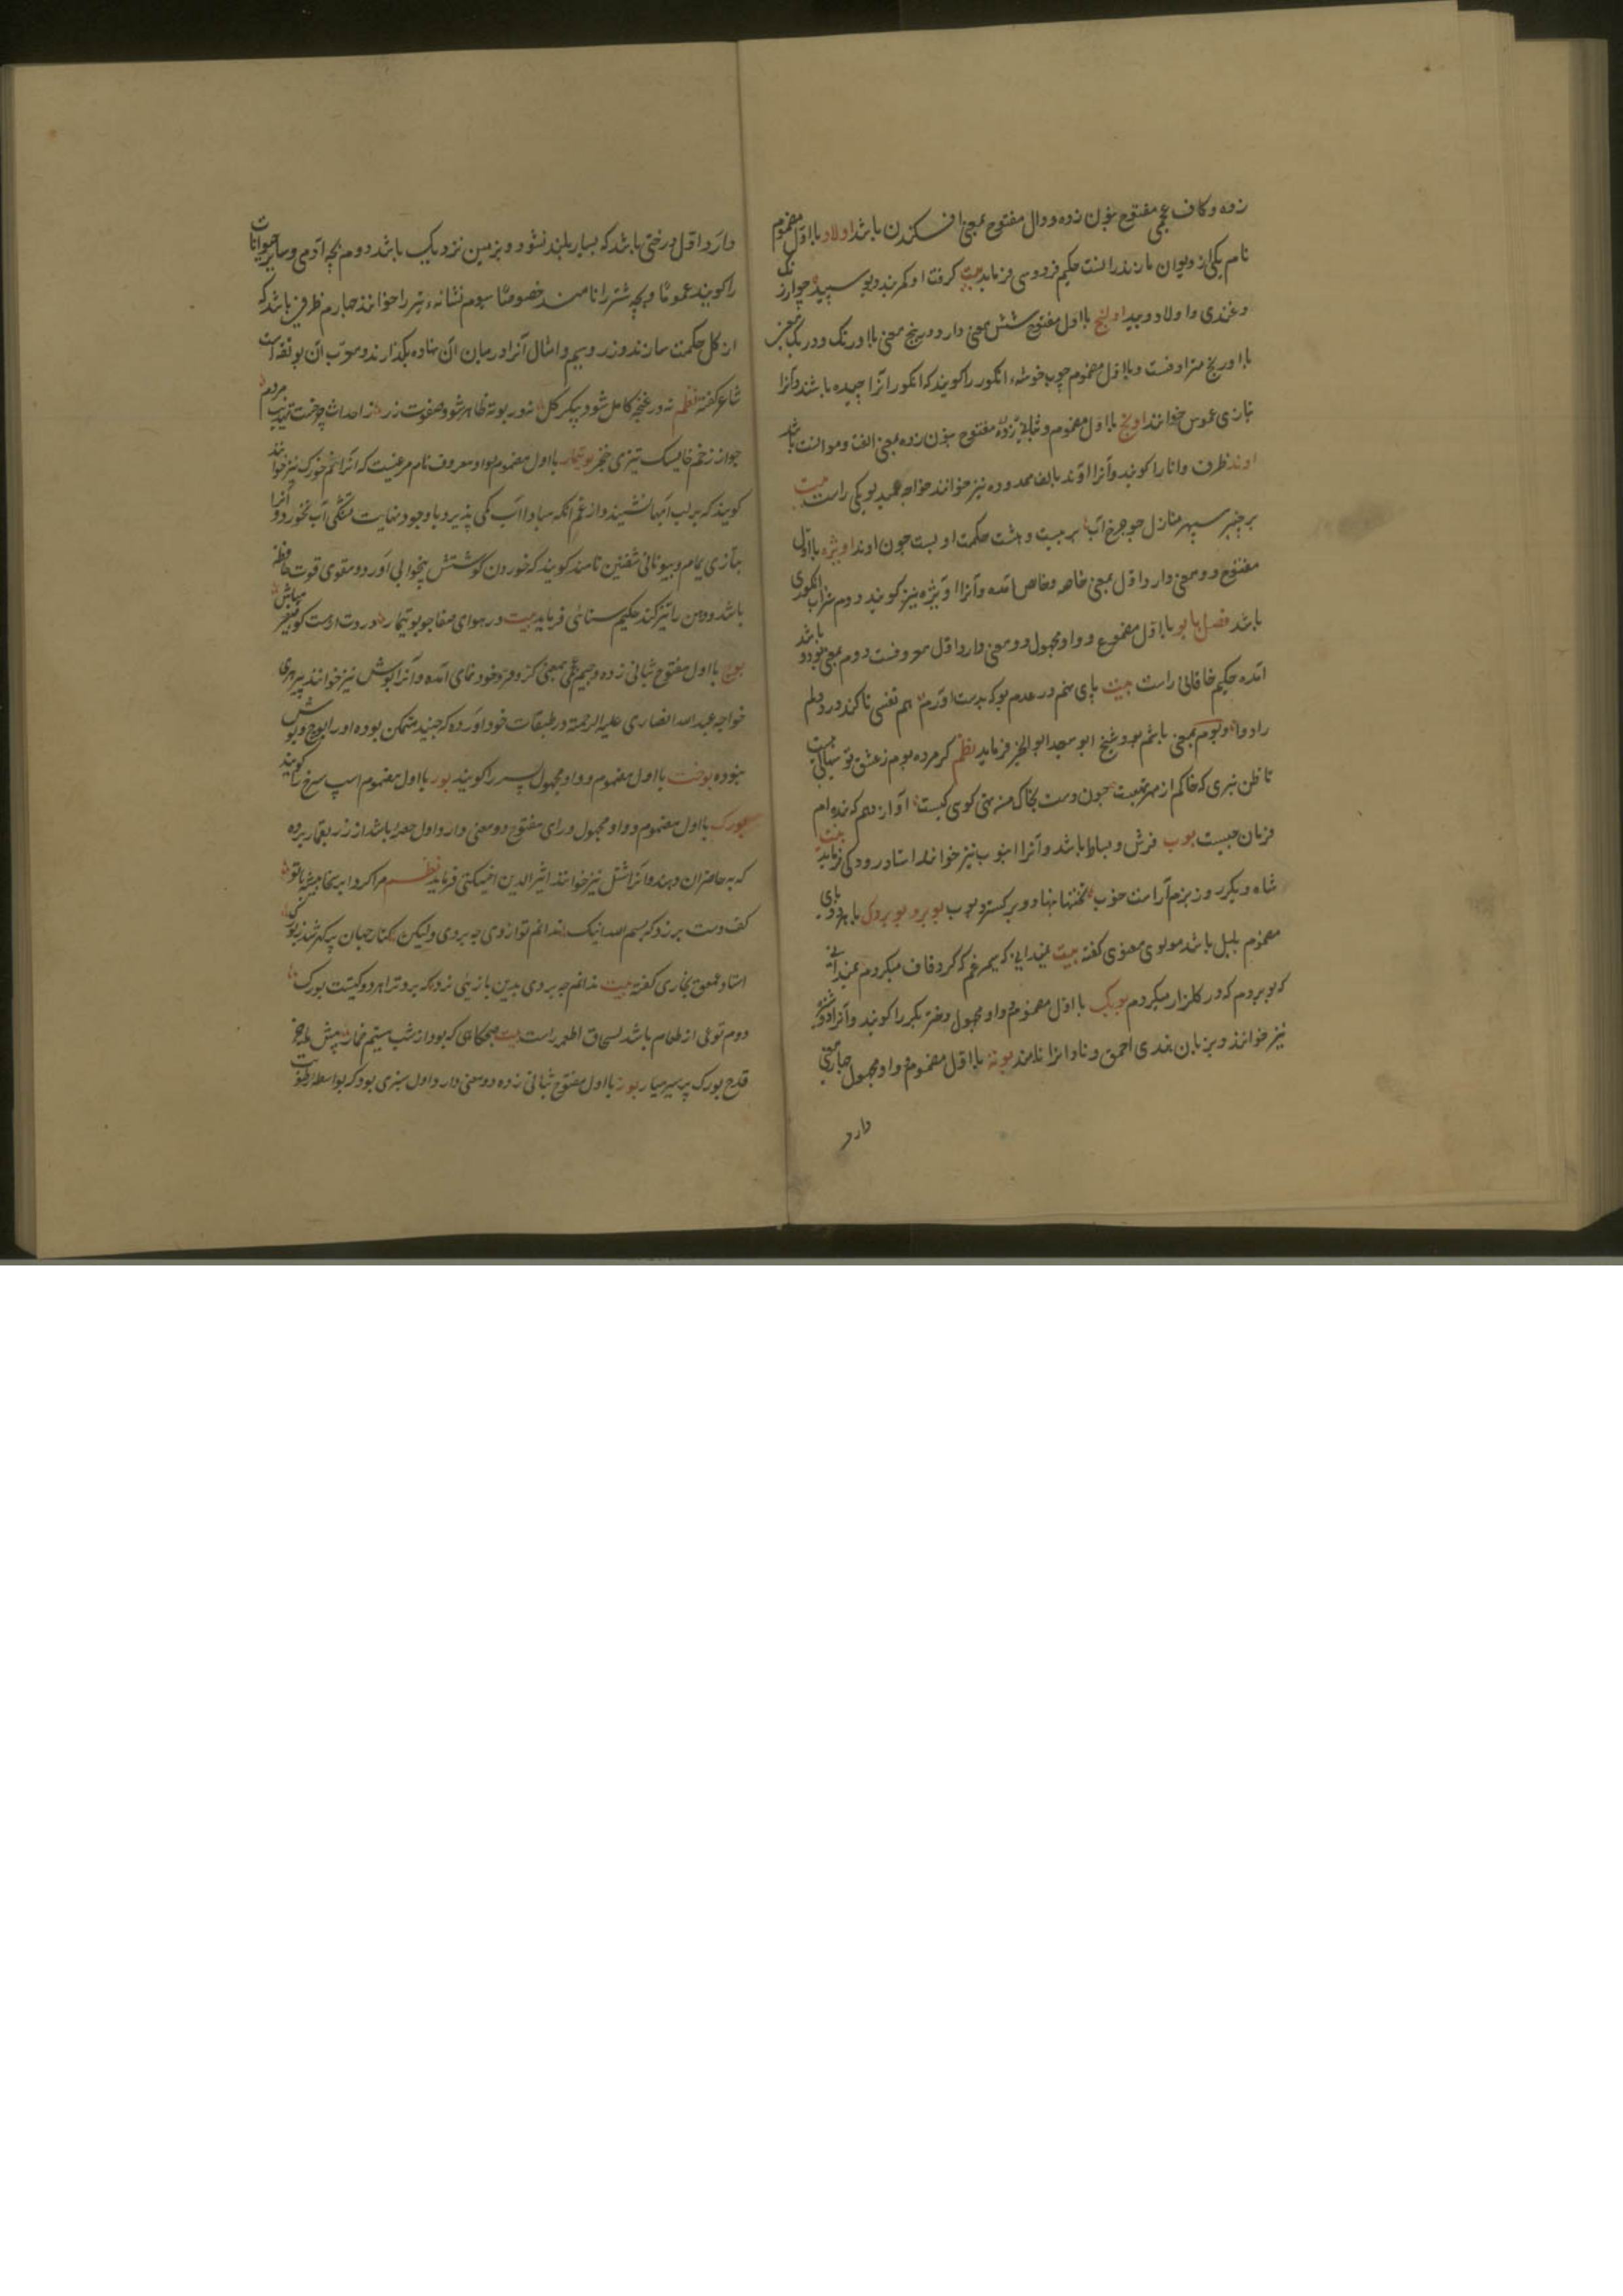 زده و کاف عجمی مفتوح بنون زده و دال مفتوح بمعنی افسکندن باشد اولاد با اول مضموم
نام یکی از دیوان مازندرانست حکیم فردوسی فرماید بیت گرفت او کمربند دیو سپید چو ارژنگ
و غندی و اولاد و بید اورنج با اول مفتوح شش معنی دارد در پنج معنی با اورنک و در یک معنی
با اورنج مترادفست و با اول مضموم چوب خوشه انکور را کویند که انکور انرا چیده باشند و آنرا
بتازی خوانند با اول مضموم و مفتوح بنون زده بمعنی الفت و موانست باشد
اوند ظرف و انا را کویند و آنرا آوند بالف ممدوده نیز خوانند خواجه عمید لویکی راست بیت
بر سپهر منازل چو چرخ آب بر بیست و هشت حکمت اوبست چون اوند اویژه با اول
مفتوح دو معنی دارد اول بمعنی خاصه و خاص آمده و آنرا اویژه نیز کویند دوم شراب انکوری
باشد فصل با بو با اول مضموم و واو مجهول دو معنی دارد اول معروفست دوم بمعنی بود و باشد
آمده حکیم خاقانی راست بیت پای نهم در عدم بوکه بدست آورم هم نفسی تا کند درد دلم
را دوا و بوم بمعنی باشم بود شیخ ابو سعید ابو الخیر فرماید نظم کر مرده بوم ز عشق تو سالی بیست
تا ظن نبری که خاکم از مهر تهیست چون دست بخاک من نهی کوی کیست آواز دهم که زنده ام
فرمان چیست بوب فرش و بساط باشد و آنرا انبوب نیز خوانند استاد رودکی فرماید بیت
شاه دیگر روز بزم آراست خوب تختها بنهاد و بر کسترد بوب بوبرد و بوبردک با بای
مضموم بلبل باشد مولوی معنوی کفته بیت نمیدانی که سیمرغم که کرد قاف میکردم نمیدانی
که بوبردم که در کلزار میکردم بوپک با اول مضموم و واو مجهول دختر بکر را کویند و آنرا دوشیزه
نیز خوانند و بزبان هندی احمق و نادانرا نامند بوته با اول مضموم و واو مجهول چار معنی
دارد
دارد اول درختی باشد که بسیار بلند نشود و بزمین نزدیک باشد دوم بچه آدمی و سایر حیوانات
را کویند عموما و بچه شتر را نامند خصوصا سیوم نشانه تیر را خوانند چهارم ظرفی باشد که
از کل حکمت سازند و زر و سیم و امثال آنرا در میان آن نهاده بکدازند و معرب آن بوتقه است
شاعر کفته نظم نه در غنچه کامل شود پیکر کل نه در بوته ظاهر شود صفوت زر ز احداث چرخست تهذیب مردم
چو از زخم خایسک تیزی خنجر بوتیمار با اول مضموم بواو معروف نام مرغیست که انرا غم خورک نیز خوانند
کویند که بر لب آبها نشیند و از غم انکه مبادا آب کمی پذیرد با وجود نهایت تشنکی آب نخورد و آنرا
بتازی یمام و بیونانی شفنین نامند کویند که خوردن کوشتش بیخوابی آورد و مقوی قوت حافظه
باشد و ذهن را تیز کند حکیم سنائی فرماید بیت در هوای صفا چو بوتیمار
بوچ با اول مفتوح بثانی زده و جیم عجمی بمعنی کر و فر و خود نمای آمده و آنرا بوش نیز خوانند پیر هری
خواجه عبد الله انصاری علیه الرحمة در طبقات خود آورده که جنید متمکن بوده او را بوچ و بوش
نبوده بوخت با اول مضموم و واو مجهول پسر را کویند بور با اول مضموم اسپ سرخ را کویند
بورک با اول مضموم و واو مجهول و رای مفتوح دو معنی دارد اول حصه باشد از زر بقمار برده
که به حاضران دهند و آنرا شتل نیز خوانند اثیر الدین اخسیکتی فرماید نظم
کف دست بر زد که بسم الله اینک ندانم تو از وی چه بردی ولیکن کنار جهان پر کهر شد ز بورک
استاد عمعق بخاری کفته بیت ندانم چه بردی بدین
دوم نوعی از طعام باشد بسحاق اطعمه راست بیت صبحکاهی که بود از شب مستیم خمار پیش ما جز
قدح بورک پر سیر میار بورا با اول مفتوح بثانی زده دو معنی دارد اول سبزی بود که بواسطه رطوبت